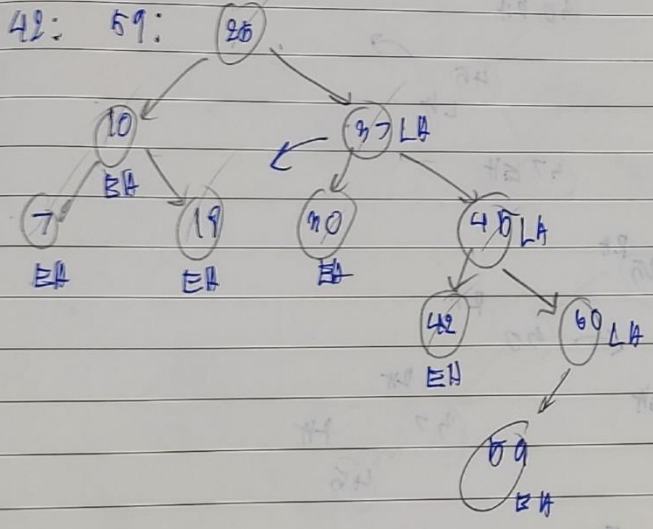 42: 59: 25
10 37 LA
EH
7 19 30 45 LA
EH EH EH
42 60 LA
EH
59
EH